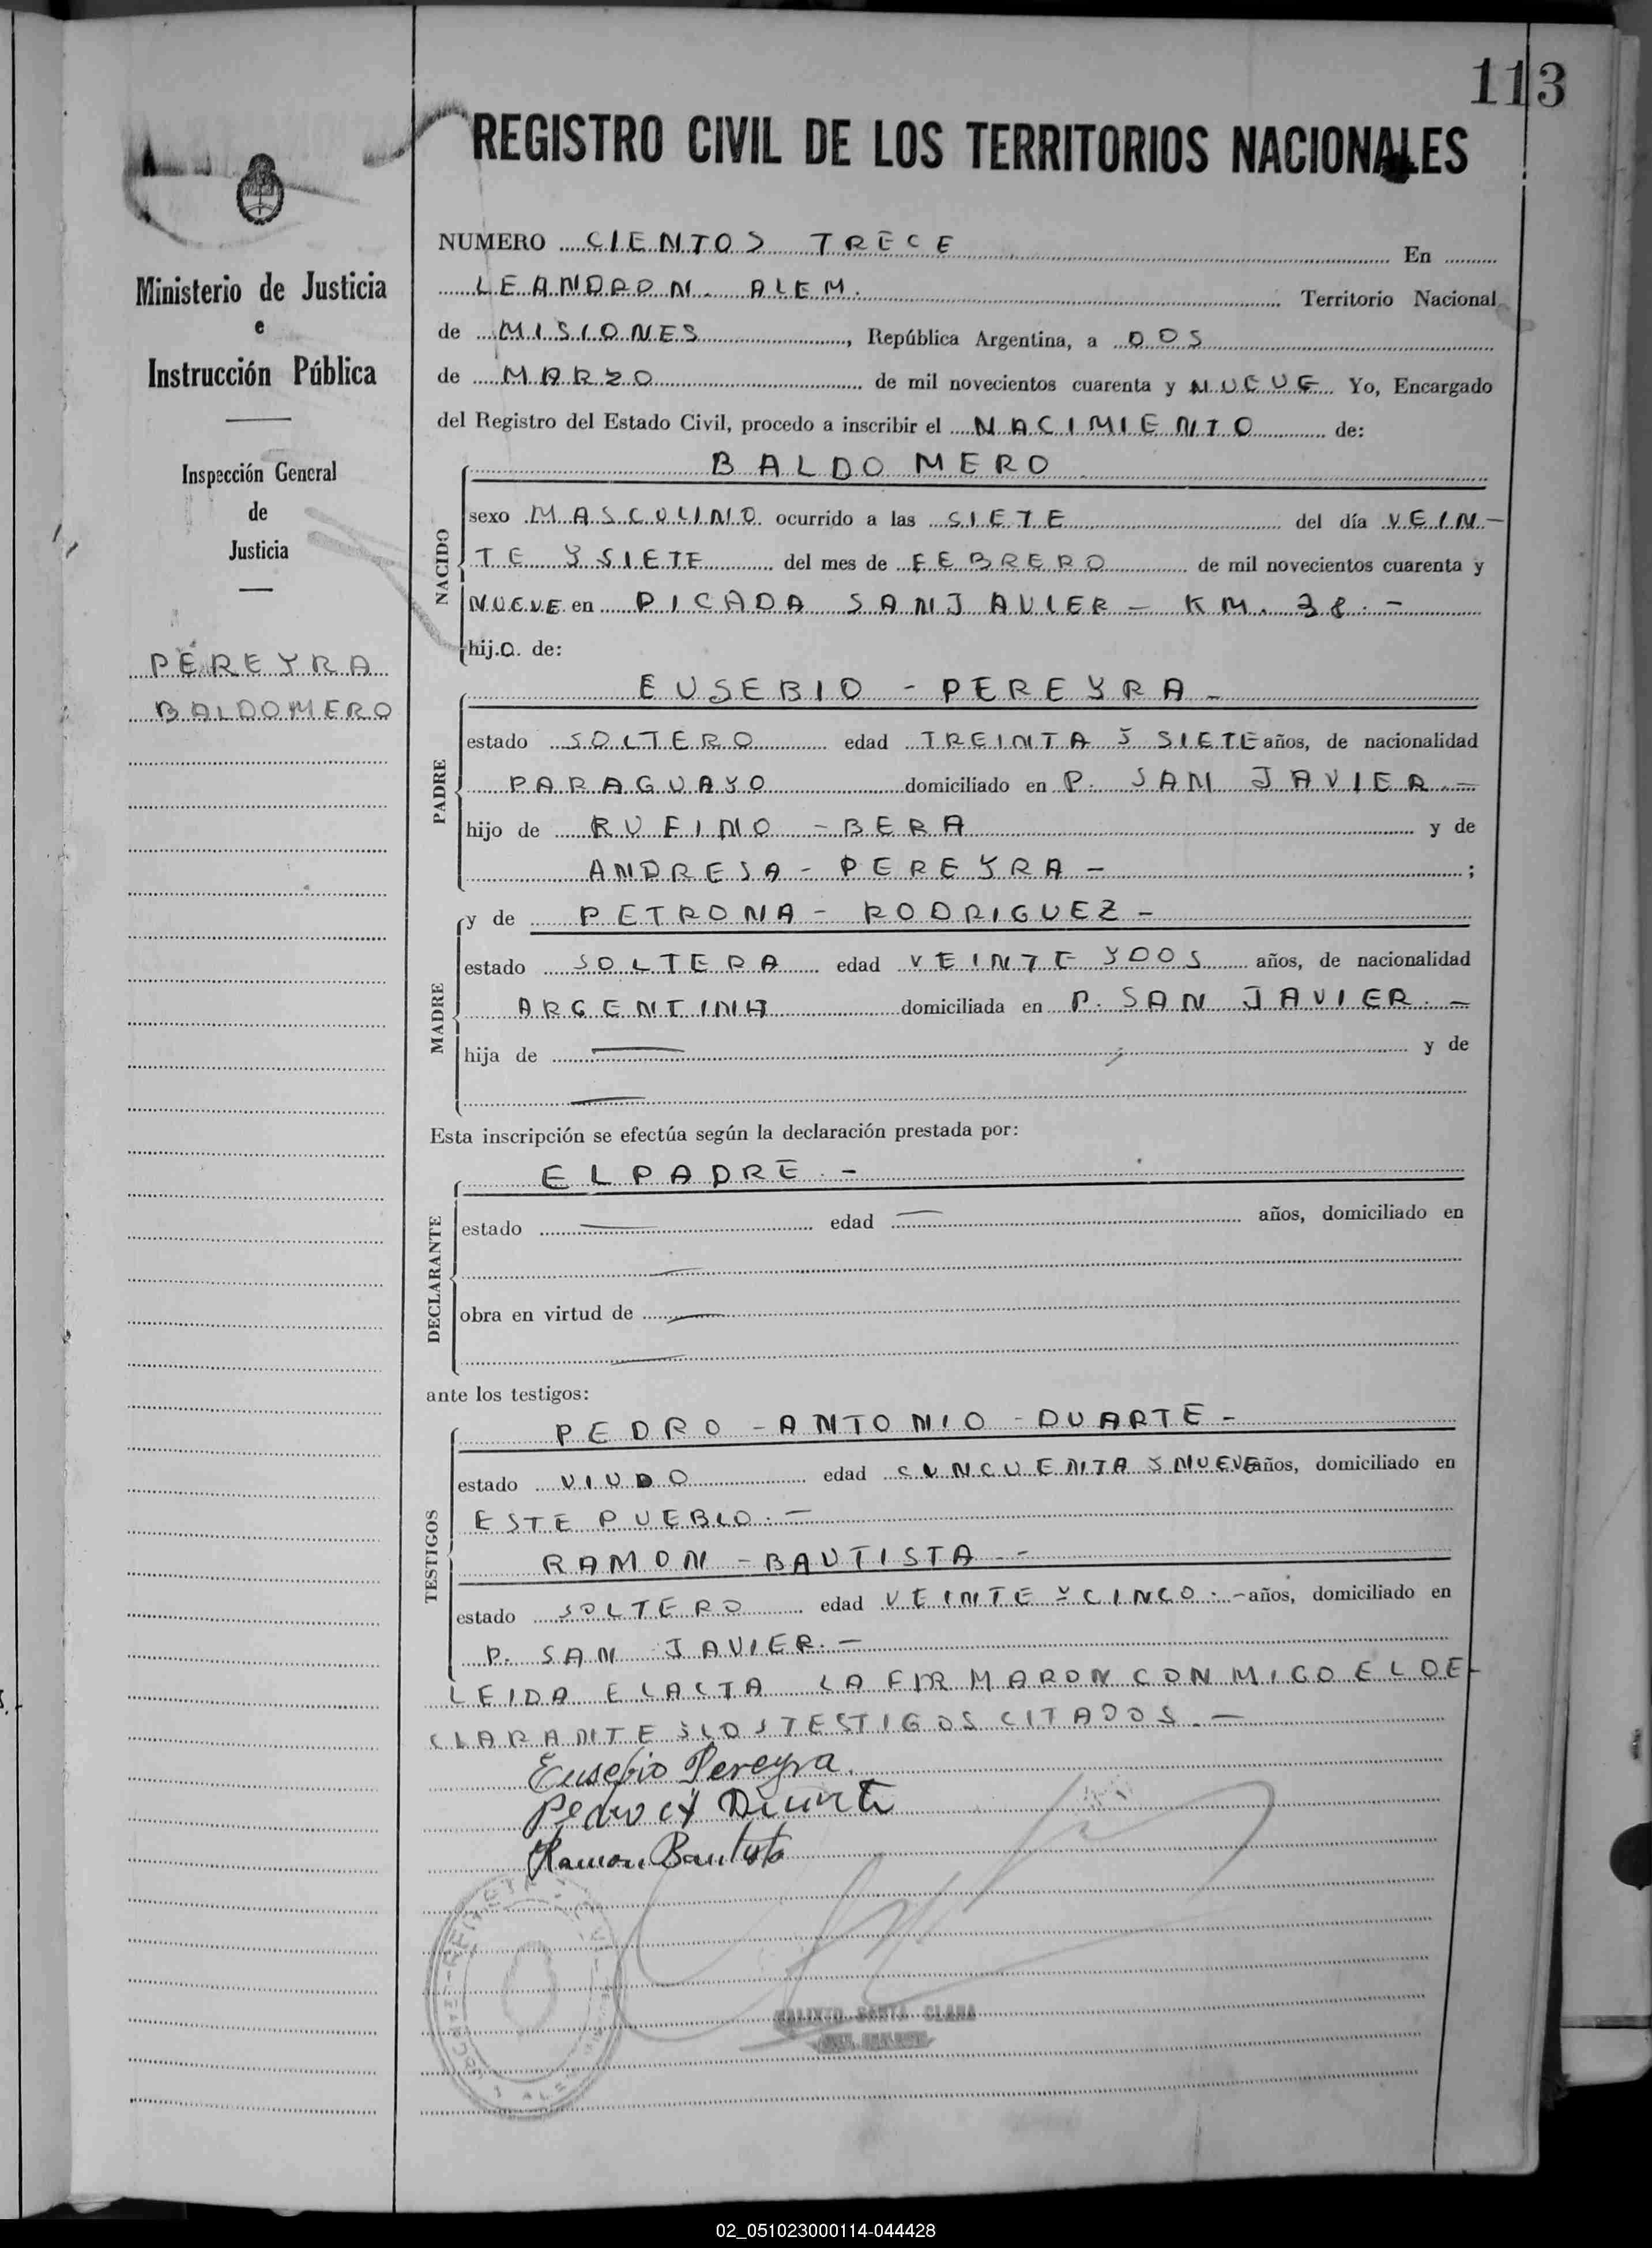 113
REGISTRO CIVIL DE LOS TERRITORIOS NACIONALES
Ministerio de Justicia
e
Instrucción Pública
Inspección General
de
Justicia
PEREYRA
BALDOMERO
NUMERO CIENTOS TRECE En
LEANDRO N. ALEM. Territorio Nacional
de MISIONES, República Argentina, a DOS
de MARZO de mil novecientos cuarenta y NUEVE Yo, Encargado
del Registro del Estado Civil, procedo a inscribir el NACIMIENTO de:
NACIDO
BALDOMERO
sexo MASCULINO ocurrido a las SIETE del día VEIN-
TE Y SIETE del mes de FEBRERO de mil novecientos cuarenta y
NUEVE en PICADA SAN JAVIER - KM. 38. -
hijo de:
PADRE
EUSEBIO - PEREYRA -
estado SOLTERO edad TREINTA Y SIETE años, de nacionalidad
PARAGUAYO domiciliado en P. SAN JAVIER. -
hijo de RUFINO - BERA y de
ANDRESA - PEREYRA - ;
MADRE
y de PETRONA - RODRIGUEZ -
estado SOLTERA edad VEINTE Y DOS años, de nacionalidad
ARGENTINA domiciliada en P. SAN JAVIER. -
hija de — y de
—
Esta inscripción se efectúa según la declaración prestada por:
DECLARANTE
EL PADRE. -
estado — edad — años, domiciliado en
—
obra en virtud de —
—
ante los testigos:
TESTIGOS
PEDRO - ANTONIO - DUARTE -
estado VIUDO edad CUNCUENTA Y NUEVE años, domiciliado en
ESTE PUEBLO. -
RAMON - BAUTISTA - -
estado SOLTERO edad VEINTE Y CINCO. - años, domiciliado en
P. SAN JAVIER. -
LEIDA EL ACTA LA FIRMARON CONMIGO EL DE-
CLARANTE Y LOS TESTIGOS CITADOS. -
Eusebio Pereyra.
Pedro A Duarte
Ramon Bautista
SANTA CLARA
02_051023000114-044428